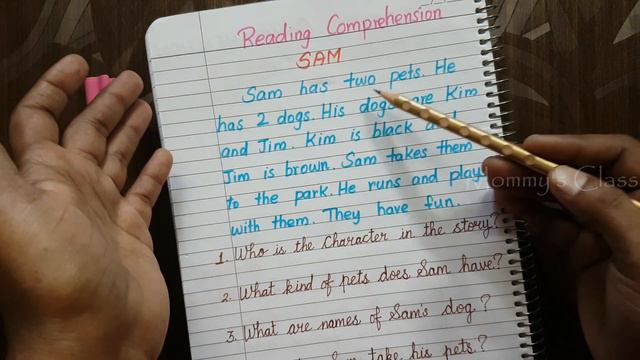 Reading Comprehension
SAM
Sam has two pets. He
has 2 dogs. His dogs are Kim
and Jim. Kim is black
Jim is brown. Sam takes them
to the park. He runs and play
with them. They have fun.
1. Who is the Character in the story?
2. What kind of pets does Sam have?
3. What are names of Sam's dog?
take his pets?
Mommy's Class